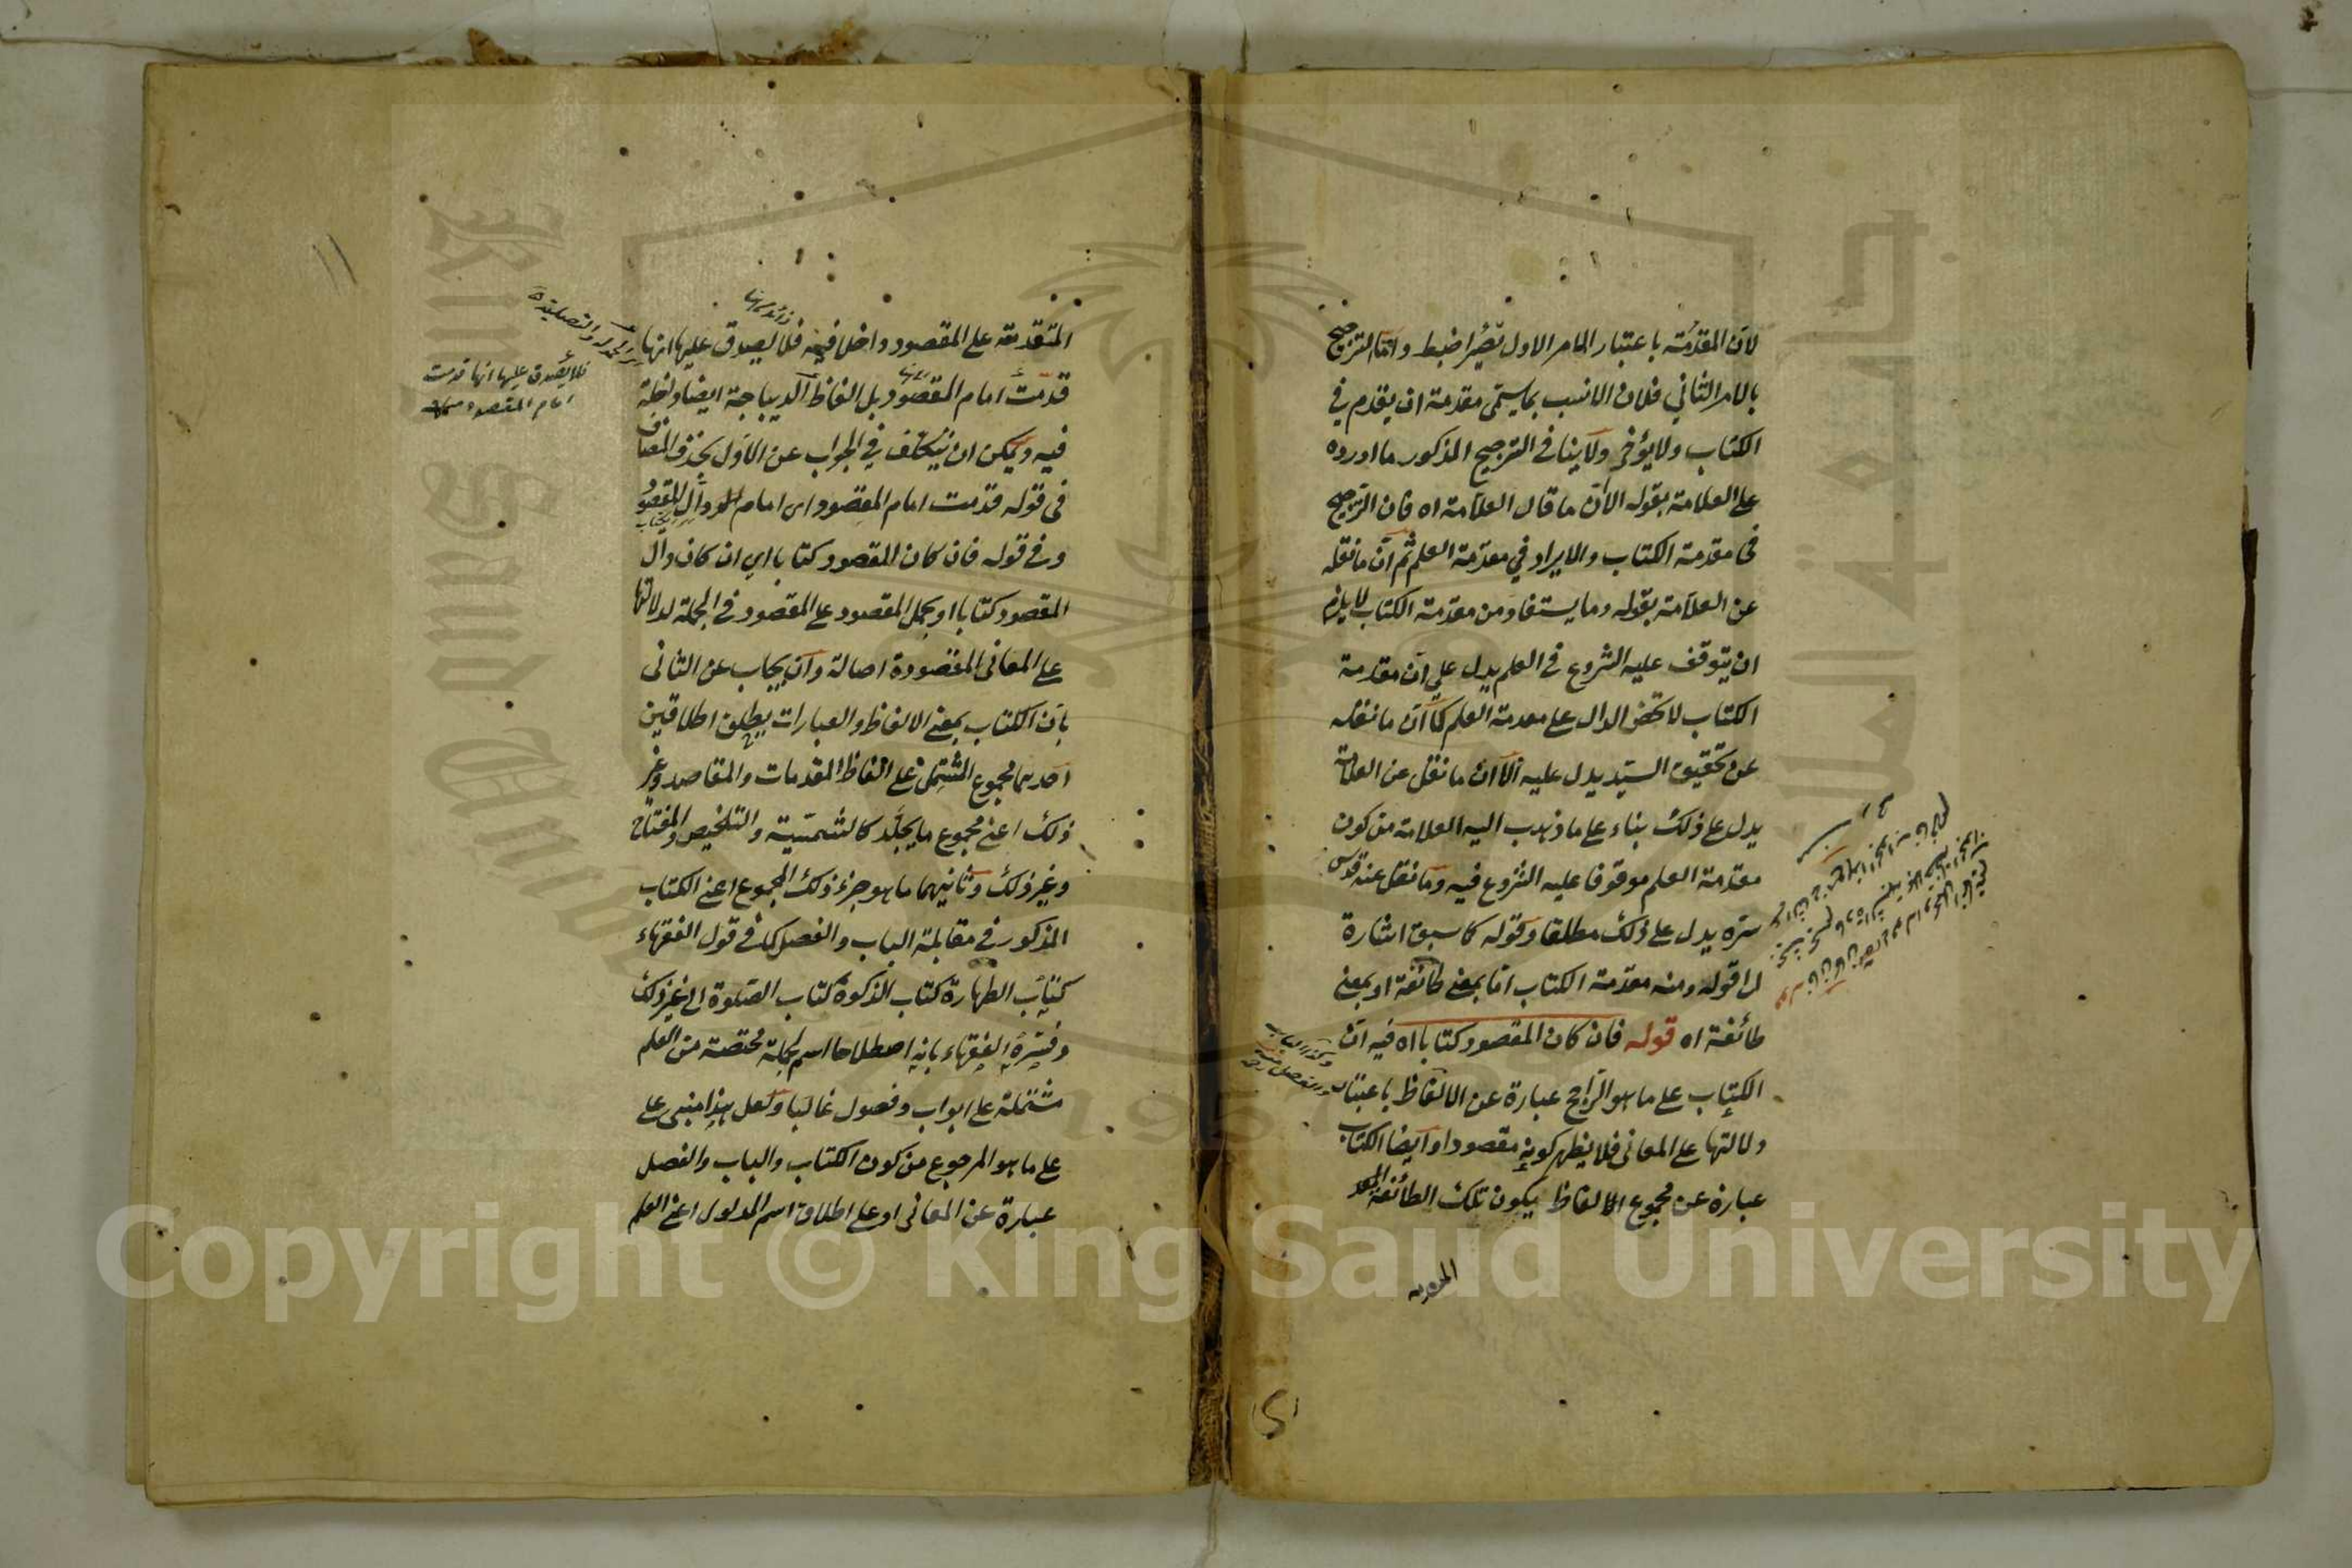 لان المقدمة باعتبار الامر الاول يصير اضبط واما الترجيح
بالامر الثاني فلان الانسب بما يسمى مقدمة ان يقدم في
الكتاب ولا يؤخر ولا ينافي الترجيح المذكور ما اورده
على العلامة بقوله الا ان ما قال العلامة اه فان الترجيح
في مقدمة الكتاب والايراد في مقدمة العلم ثم ان ما نقله
عن العلامة بقوله وما يستفاد من مقدمة الكتاب لا يلزم
ان يتوقف عليه الشروع في العلم يدل على ان مقدمة
الكتاب لا تخص الدال على مقدمة العلم كما ان ما نقله
عن تحقيق السيد يدل عليه الا ان ما نقل عن العلامة
يدل على ذلك بناء على ما ذهب اليه العلامة من كون
مقدمة العلم موقوفا عليه الشروع فيه وما نقل عنه قدس
سره يدل على ذلك مطلقا وقوله كما سبق اشارة
الى قوله ومنه مقدمة الكتاب اما بمعنى طائفة او بمعنى
طائفة اه قوله فان كان المقصود كتابا اه فيه ان
وكذا الباب
والفصل منه
الكتاب على ما هو الراجح عبارة عن الالفاظ باعتبار
دلالتها على المعاني فلا يظهر كونه مقصودا وايضا الكتاب
عبارة عن مجموع الالفاظ يكون تلك الطائفة
المتقدمة على المقصود داخل فيه فلا يصدق عليها انها
قدمت امام المقصود بل الفاظ الديباجة ايضا داخلة
فلا يصدق عليها انها قدمت
امام المقصود
فيه ويمكن ان يتكلف في الجواب عن الاول بحذف المضاف
في قوله قدمت امام المقصود اى امام دال المقصود
وفي قوله فان كان المقصود كتابا اي ان كان دال
المقصود كتابا او بحمل المقصود على المقصود في الجملة لدلالتها
على المعاني المقصودة اصالة وان يجاب عن الثاني
بان الكتاب بمعنى الالفاظ والعبارات يطلق اطلاقين
احدهما مجموع المشتمل على الفاظ المقدمات والمقاصد وغير
ذلك اعني مجموع ما يجلد كالشمسية والتلخيص والمفتاح
وغير ذلك وثانيهما ما هو جزء ذلك المجموع اعني الكتاب
المذكور في مقابلة الباب والفصل كما في قول الفقهاء
كتاب الطهارة كتاب الزكوة كتاب الصلوة الى غير ذلك
وفسره الفقهاء بانه اصطلاحا اسم لجملة مختصة من العلم
مشتملة على ابواب وفصول غالبا ولعل هذا مبنى على
على ما هو المرجوع من كون الكتاب والباب والفصل
عبارة عن المعاني او على اطلاق اسم المدلول اعني العلم
Copyright © King Saud University